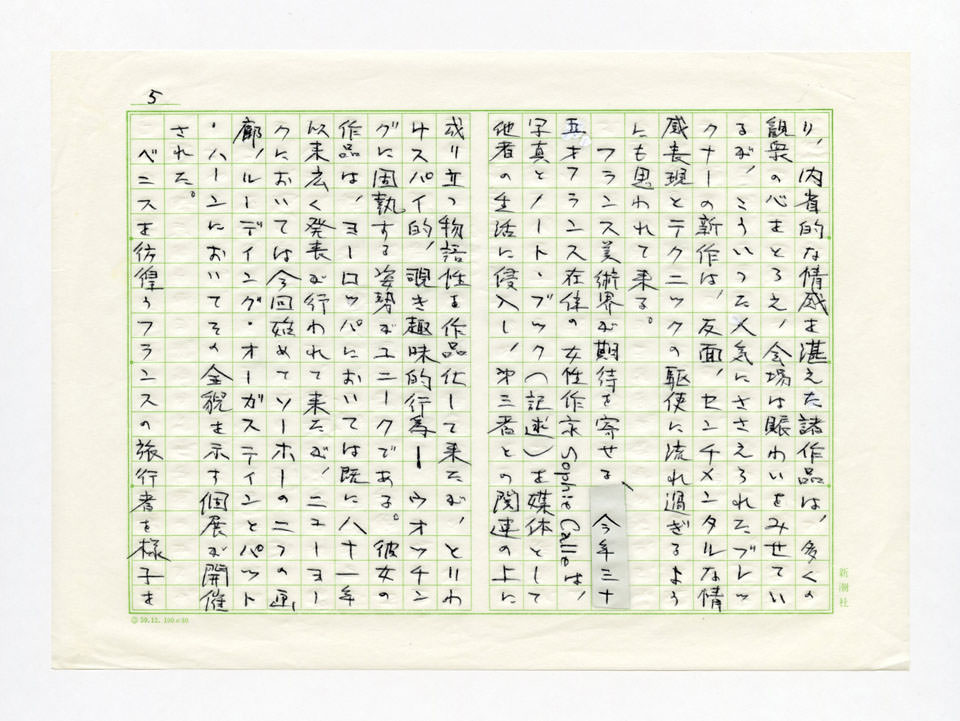 5
り、内省的な情感を湛えた諸作品は、多くの
観衆の心をとらえ、会場は賑わいをみせてい
るが、こういった人気にささえられたブレッ
クナーの新作は、反面、センチメンタルな情
感表現とテクニックの駆使に流れ過ぎるよう
にも思われて来る。
フランス美術界が期待を寄せる、今年三十
五才フランス在住の女性作家Sophie Calleは、
写真とノート・ブック(記述)を媒体として
他者の生活に侵入し、第三者との関連の上に
成り立つ物語性を作品化して来たが、とりわ
けスパイ的、覗き趣味的行為ーウオッチン
グに固執する姿勢がユニークである。彼女の
作品は、ヨーロッパにおいては既に八十一年
以来広く発表が行われて来たが、ニューヨー
クにおいては今回始めてソーホーの二つの画
廊、ルーディング・オーガスティンとパット
・ハーンにおいてその全貌を示す個展が開催
された。
ベニスを彷徨うフランスの旅行者を様子を
新潮社
59.12. 100×50